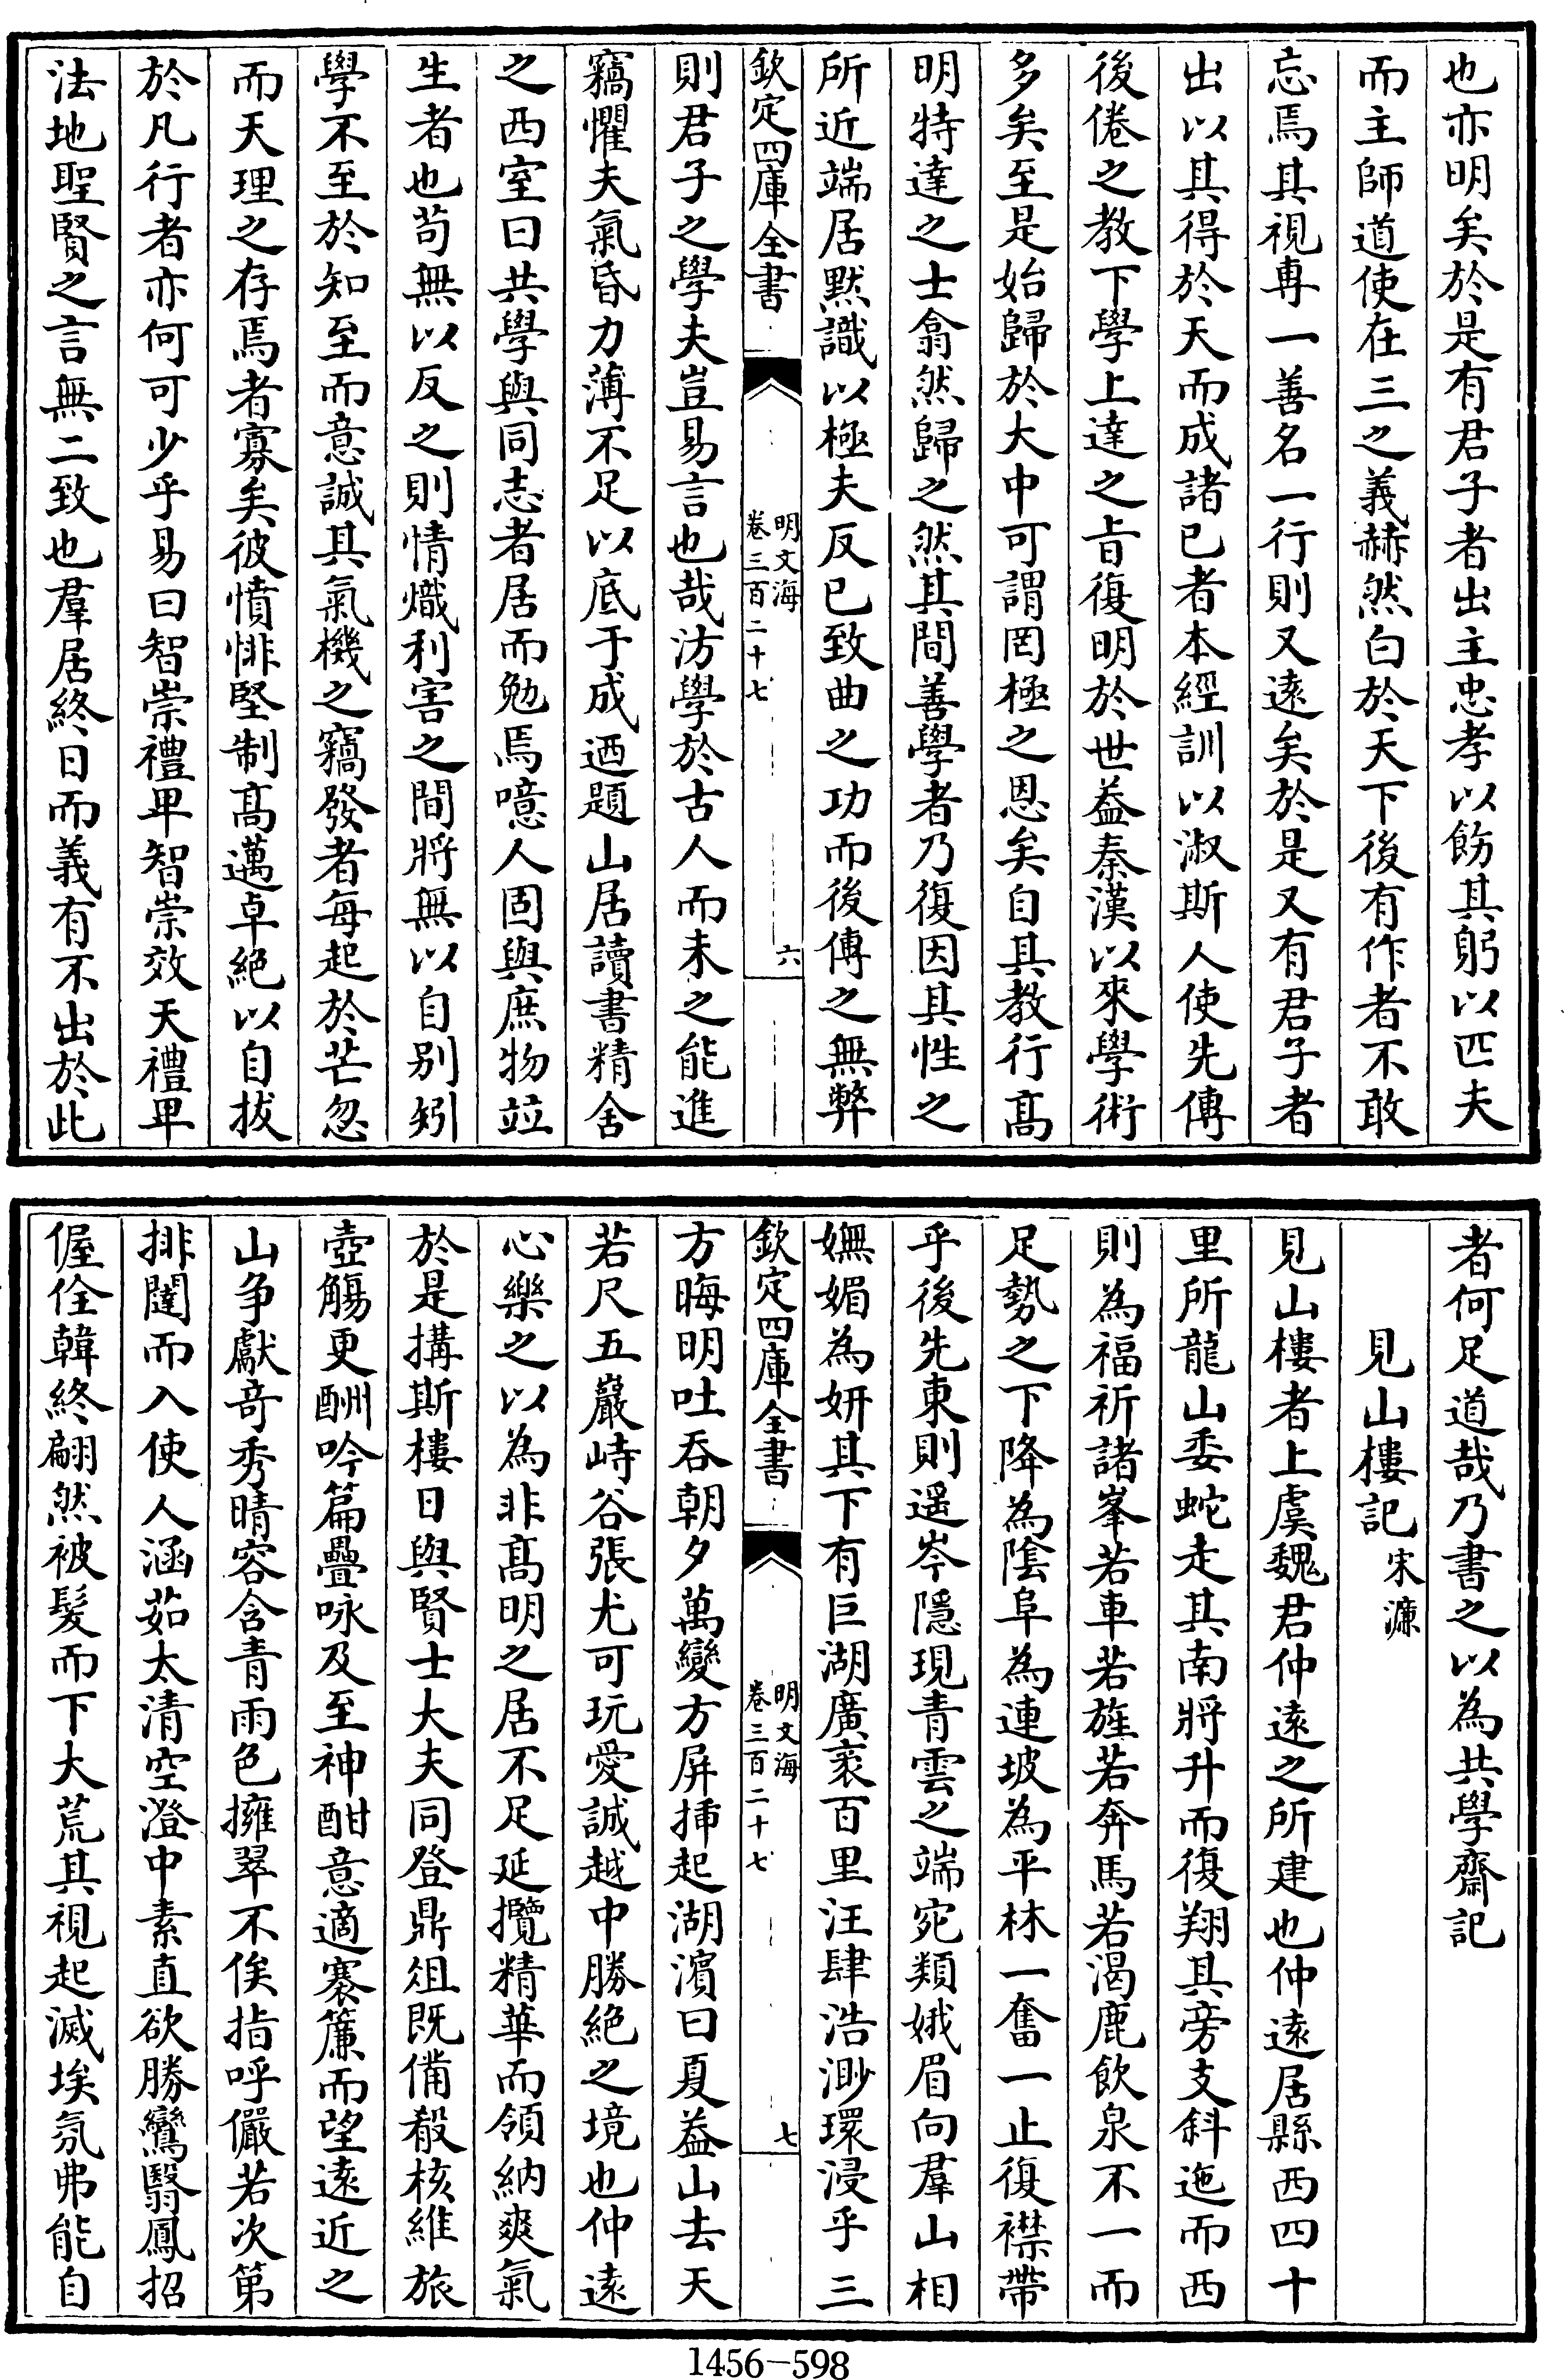 也亦明矣於是有君子者出主忠孝以飭其躬以匹夫
而主師道使在三之義赫然白於天下後有作者不敢
忘焉其視専一善名一行則又逺矣於是又有君子者
出以其得於天而成諸已者本經訓以淑斯人使先傳
後倦之教下學上達之㫖復明於世葢秦漢以來學術
多矣至是始歸於大中可謂罔極之恩矣自其教行髙
明特達之士翕然歸之然其間善學者乃復因其性之
所近端居黙識以極夫反已致曲之功而後傳之無弊
欽定四庫全書
明文海
卷三百二十七
六
則君子之學夫豈易言也哉汸學於古人而未之能進
竊懼夫氣昏力薄不足以底于成迺題山居讀書精舍
之西室曰共學與同志者居而勉焉噫人固與庶物竝
生者也茍無以反之則情熾利害之間將無以自别矧
學不至於知至而意誠其氣機之竊發者每起於芒忽
而天理之存焉者寡矣彼憤悱堅制髙邁卓絶以自拔
於凡行者亦何可少乎易曰智崇禮卑智崇效天禮卑
法地聖賢之言無二致也羣居終日而義有不出於此
者何足道哉乃書之以為共學齋記
見山樓記 宋濂
見山樓者上虞魏君仲逺之所建也仲逺居縣西四十
里所龍山委蛇走其南將升而復翔其旁支斜迤而西
則為福祈諸峯若車若旌若奔馬若渴鹿飲泉不一而
足勢之下降為隂阜為連坡為平林一奮一止復襟帶
乎後先東則遥岑隱現青雲之端宛類娥眉向羣山相
嫵媚為妍其下有巨湖廣袤百里汪肆浩渺環浸乎三
欽定四庫全書
明文海
卷三百二十七
七
方晦明吐吞朝夕萬變方屏揷起湖濵曰夏葢山去天
若尺五巖峙谷張尤可玩愛誠越中勝絶之境也仲逺
心樂之以為非髙明之居不足延攬精華而領納爽氣
於是搆斯樓日與賢士大夫同登鼎俎既備殽核維旅
壺觴更酬吟篇疊咏及至神酣意適褰簾而望逺近之
山争獻竒秀晴容含青雨色擁翠不俟指呼儼若次第
排闥而入使人涵茹太清空澄中素直欲勝鸞翳鳳招
偓佺韓終翩然被髪而下大荒其視起滅埃氛弗能自
1456—598